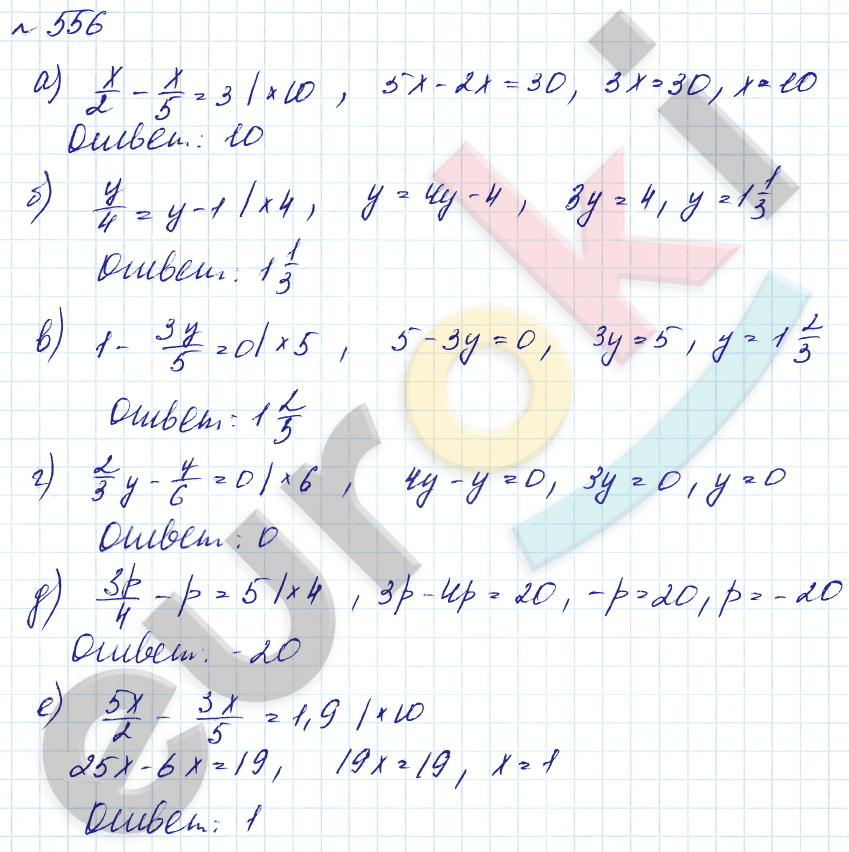 № 556
а) x/2 - x/5 = 3 | × 10 , 5x - 2x = 30, 3x = 30, x = 10
Ответ: 10
б) y/4 = y - 1 | × 4 , y = 4y - 4 , 3y = 4, y = 1 1/3
Ответ: 1 1/3
в) 1 - 3y/5 = 0 | × 5 , 5 - 3y = 0, 3y = 5, y = 1 2/3
Ответ: 1 2/5
г) 2/3 y - y/6 = 0 | × 6 , 4y - y = 0, 3y = 0, y = 0
Ответ: 0
д) 3p/4 - p = 5 | × 4 , 3p - 4p = 20, -p = 20, p = -20
Ответ: -20
е) 5x/2 - 3x/5 = 1,9 | × 10
25x - 6x = 19, 19x = 19, x = 1
Ответ: 1
euroki